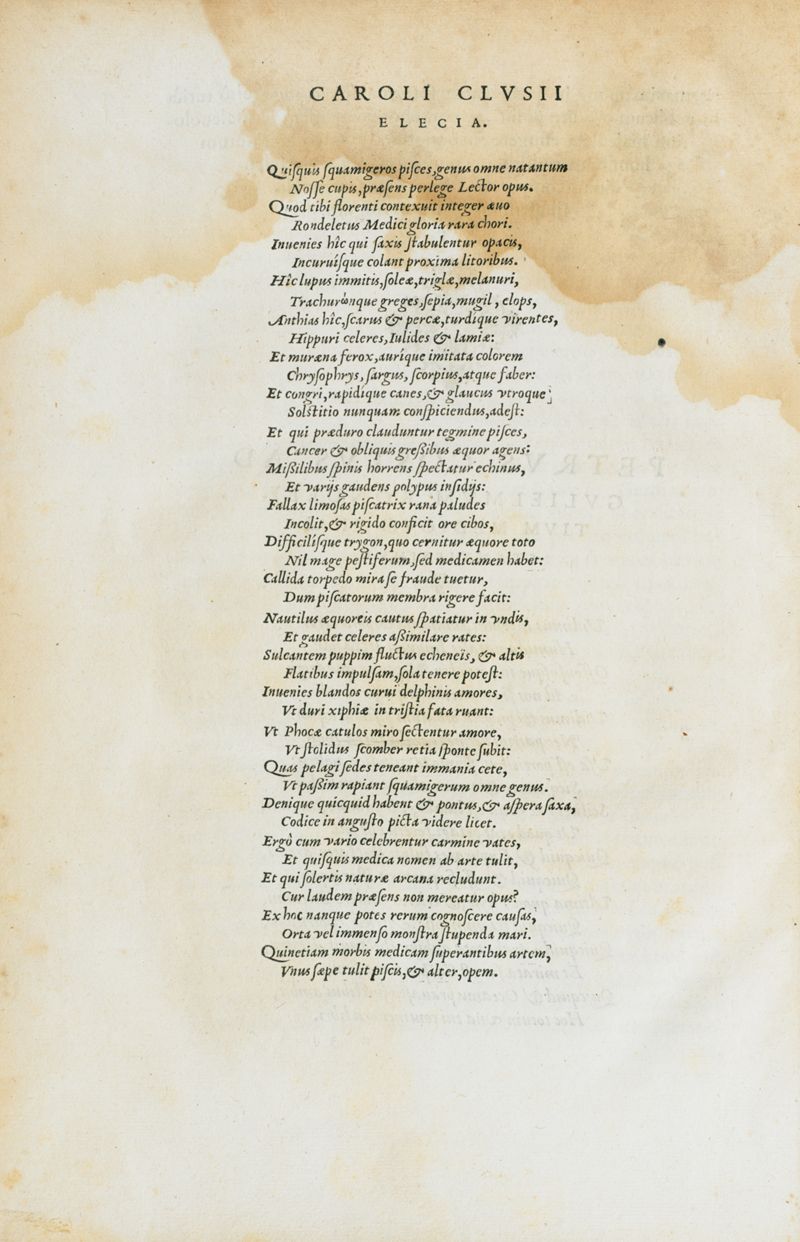 CAROLI CLVSII
ELECIA.
Quiſquis ſquamigeros piſces, genus omne natantum
Noſſe cupis, præſens perlege Lector opus.
Quod tibi florenti contexuit integer æuo
Rondeletus Medici gloria rara chori.
Inuenies hîc qui ſaxis ſtabulentur opacis,
Incuruiſque colant proxima litoribus.
Hîc lupus immitis, ſoleæ, triglæ, melanuri,
Trachurῶnque greges, ſepia, mugil, elops,
Anthias hîc, ſcarus & percæ, turdique virentes,
Hippuri celeres, Iulides & lamiæ:
Et muræna ferox, aurique imitata colorem
Chryſophrys, ſargus, ſcorpius, atque faber:
Et congri, rapidique canes, & glaucus vtroque
Solſtitio nunquam conſpiciendus, adeſt:
Et qui præduro clauduntur tegmine piſces,
Cancer & obliquis greſsibus æquor agens:
Miſsilibus ſpinis horrens ſpectatur echinus,
Et varijs gaudens polypus inſidijs:
Fallax limoſas piſcatrix rana paludes
Incolit, & rigido conficit ore cibos,
Difficiliſque trygon, quo cernitur æquore toto
Nil mage peſtiferum, ſed medicamen habet:
Callida torpedo mira ſe fraude tuetur,
Dum piſcatorum membra rigere facit:
Nautilus æquoreis cautus ſpatiatur in vndis,
Et gaudet celeres aſsimilare rates:
Sulcantem puppim fluctus echeneïs, & altis
Flatibus impulſam, ſola tenere poteſt:
Inuenies blandos curui delphinis amores,
Vt duri xiphiæ in triſtia fata ruant:
Vt Phocæ catulos miro ſectentur amore,
Vt ſtolidus ſcomber retia ſponte ſubit:
Quas pelagi ſedes teneant immania cete,
Vt paſsim rapiant ſquamigerum omne genus.
Denique quicquid habent & pontus, & aſpera ſaxa,
Codice in anguſto picta videre licet.
Ergò cum vario celebrentur carmine vates,
Et quiſquis medica nomen ab arte tulit,
Et qui ſolertis naturæ arcana recludunt.
Cur laudem præſens non mereatur opus?
Ex hoc nanque potes rerum cognoſcere cauſas,
Orta vel immenſo monſtra ſtupenda mari.
Quinetiam morbis medicam ſuperantibus artem,
Vnus ſæpe tulit piſcis, & alter, opem.